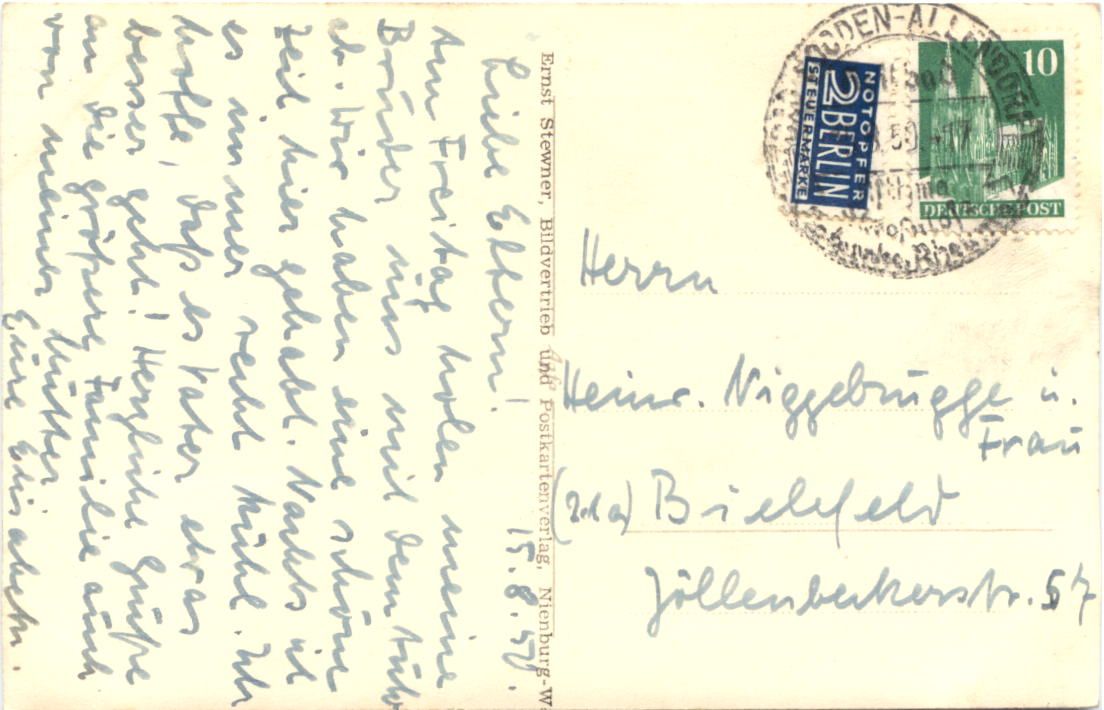 Liebe Eltern!
15.8.50.
Am Freitag holen meine
Brüder uns mit dem Auto
ab. Wir haben eine schöne
Zeit hier gehabt. Nachts ist
es immer recht kühl. Ich
hoffe, daß es Vater etwas
besser geht! Herzliche Grüße
an die größere Familie auch
von meiner Mutter
Eure Elisabeth.
Ernst Stewner, Bildvertrieb und Postkartenverlag, Nienburg-W
SOODEN-ALLENDORF
50.-17
NOTOPFER
2 BERLIN
STEUERMARKE
10
DEUTSCHE POST
Herrn
Heinr. Niggebrügge u.
Frau
(21a) Bielefeld
Jöllenbeckerstr. 57